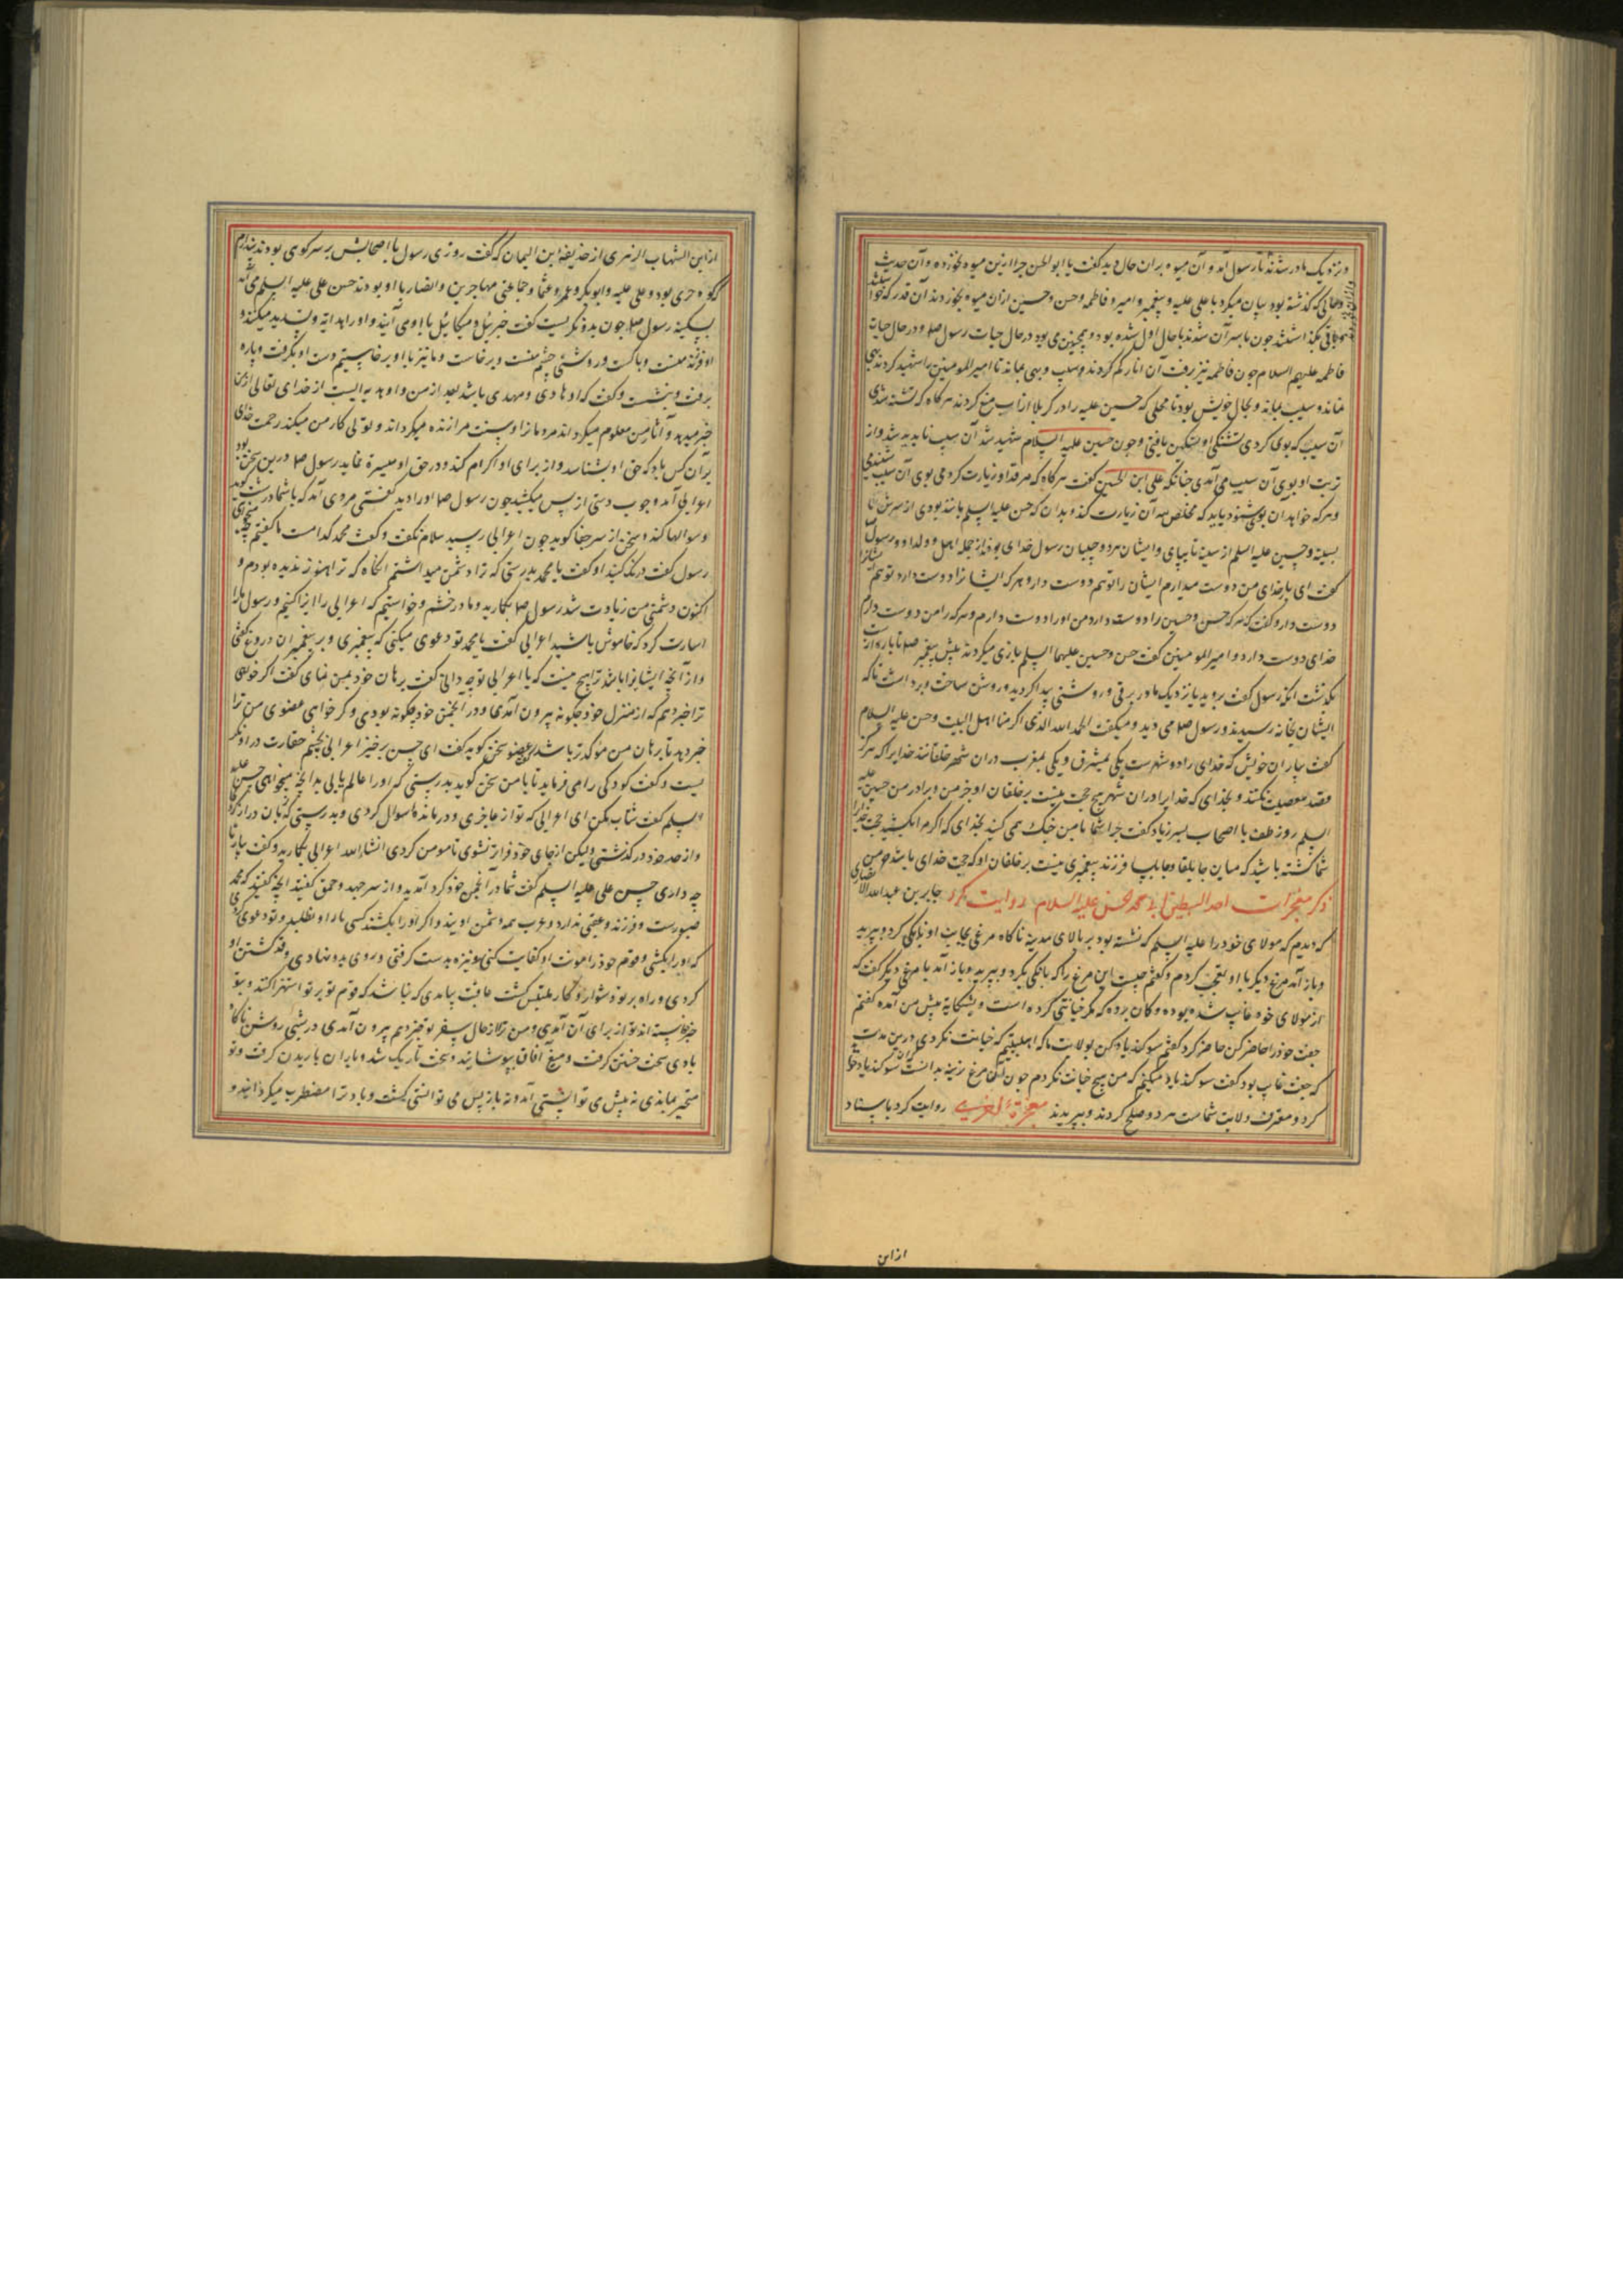 و نزدیک مادر شدند تا رسول آمد و آن میوه بران حال دید گفت یا ابوالحسن چرا ازین میوه نخورده و آن حدیث
و حالی که گذشته بود بیان میکرد با علی علیه و پیغمبر و امیر و فاطمه و حسن و حسین ازان میوه بخوردند آن قدر که خواستند
و باقی بگذاشتند چون با سر آن شدند با حال اول شده بود و همچنین می بود در حال حیات رسول صلم و در حال حیات
فاطمه علیهم السلام چون فاطمه نیز برفت آن انار گم کردند و سیب و بهی بماند تا امیر المومنین را شهید کردند بهی
نماند و سیب بماند و بحال خویش بود تا محلی که حسین علیه را در کربلا از اب منع کردند هر گاه که تشنه شدی
آن سیب که بوی کردی تشنگی او تسکین یافتی و چون حسین علیه السلام شهید شد آن سیب ناپدید شد و از
تربت او بوی آن سیب می آمدی چنانکه علی ابن الحسین گفت هر گاه که مرقد او زیارت کردمی بوی آن سیب شنیدمی
و هر که خواهد آن بوی شنود باید که مخلص لله آن زیارت کند و بدان که حسن علیه السلم مانند بودی از سرش تا
بسینه و حسین علیه السلم از سینه تا بپای و ایشان هر دو حبیبان رسول خدای بودند از جمله اهل و ولد او و رسول
گفت ای بار خدای من دوست میدارم ایشان را تو هم دوست دار و هر که ایشانرا دوست دارد تو هم
دوست دار و گفت که هر که حسن و حسین را دوست دارد من او را دوست دارم و هر که را من دوست دارم
خدای دوست دارد و امیر المومنین گفت حسن و حسین علیهما السلم بازی میکردند پیش پیغمبر صلم تا پاره از شب
بگذشت آنگه رسول گفت بروید با نزدیک مادر برقی و روشنی پیدا گردید و روشن ساخت و برداشت تا که
ایشان بخانه رسیدند و رسول صلم می دید و میگفت الحمد الله الذی اکرمنا اهل البیت و حسن علیه السلام
گفت بیاران خویش که خدای را دو شهرست یکی بمشرق و یکی بمغرب دران شهر خلقانند خدایرا که هرگز
قصد معصیت نکنند و بخدای که خدایرا دران شهر هیچ حجت نیست بر خلقان او جز من و برادر من حسین علیه
السلم روز طف با اصحاب پسر زیاد گفت چرا شما با من جنگ همی کنید بخدای که اگر مرا بکشید حجت خدایرا
شما کشته باشید که میان جابلقا و جابلسا فرزند پیغمبری نیست بر خلقان او که حجت خدای باشد جز من
ذکر معجزات احد السبطین ابی محمد الحسن علیه السلام روایت کرد جابر بن عبدالله الانصاری
که دیدم که مولای خود را علیه السلم که نشسته بود بر بالای مدینه ناگاه مرغی بجانب او بانگی کرد و بپرید
و باز آمد مرغ دیگر با او تعجب کردم و گفتم چیست این مرغ را که بانگی بکرد و بپرید و باز آمد با مرغی دیگر گفت که
از مولای خود غایب شده بوده و گمان برده که مگر خیانتی کرده است و بشکایة پیش من آمده گفتم
جفت خود را حاضر کن حاضر کرد گفتم سوگند یاد کن بولایت ما که اهلبیتیم که خیانت نکردی درین مدت
که جفت غایب بود گفت سوگند یاد میکنم که من هیچ خیانت نکردم چون آنکه مرغ نرینه بدانست که سوگند یاد
کرد و معترف ولایت شماست هر دو صلح کردند و بپریدند معجزة اخری روایت کرد باسناد
از این
از ابن الشهاب الزهری از حذیفة ابن الیمان که گفت روزی رسول با اصحابش بر سر کوی بودند
کوه حری بود و علی علیه و ابوبکر و عمر و عثمان و جماعتی مهاجرین و انصار با او بودند حسن علی علیه السلم می آمد
بسکینه رسول صلم چون بدو نگریست گفت جبرئیل و میکائیل با او می آیند و او را هدایه و تسدید میکنند و
او فرزند منست و پاکست و روشنی چشم منست و برخاست و ما نیز با او برخاستیم دست او بگرفت و پاره
برفت و بنشست و گفت که او هادی و مهدی باشد بعد از من و او هدیه ایست از خدای تعالی از من
خبر میدهد و آثار من معلوم میگرداند مردمانرا و سنت مرا زنده میگرداند و تولی کار من میکند رحمت خدای
بر آن کس باد که حق او بشناسد و از برای او اکرام کند و در حق او مبرة نماید رسول صلم درین سخن بود
اعرابی آمد و چوب دستی از پس میکشید چون رسول صلم او را دید گفت مردی آمد که با شما درشت گوید
و سوالها کند و سخن از سر جفا گوید چون اعرابی رسید سلام نگفت و گفت محمد کدامست ما گفتیم چه میخواهی
رسول گفت درنگ کنید او گفت یا محمد بدرستی که ترا دشمن میداشتم آنگاه که ترا هنوز ندیده بودم و
اکنون دشمنی من زیادت شد رسول صلم بخندید و ما در خشم و خواستیم که اعرابی را ایذا کنیم و رسول ما را
اشارت کرد که خاموش باشید اعرابی گفت یا محمد تو دعوی میکنی که پیغمبری و بر پیغمبران دروغ گفتی
و از آنچه ایشانرا باشد ترا هیچ نیست که یا اعرابی تو چه دانی گفت برهان خود بمن نمای گفت اگر خواهی
ترا خبر دهم که از منزل خود چگونه بیرون آمدی و در انجمن خود چگونه بودی و گر خواهی عضوی من ترا
خبر دهد تا برهان من موکدتر باشد گفت عضو سخن گوید گفت ای حسن برخیز اعرابی بچشم حقارت درو نگر
یست و گفت کودکی را می فرماید تا با من سخن گوید بدرستی که او را عالم یابی بدانچه میخواهی حسن علیه
السلم گفت شتاب مکن ای اعرابی که تو از عاجزی و درمانده سوال نکردی و بدرستی که زبان دراز کردی
و از حد خود درگذشتی ولیکن از جای خود فراتر نشوی تا مومن گردی انشاءالله اعرابی بخندید و گفت بیار تا
چه داری حسن علی علیه السلم گفت شما در انجمن خود گرد آمدید و از سر جهد و حمق گفتید آنچه گفتید که محمد
صبورست و فرزند و عقبی ندارد و عرب همه دشمن اویند و اگر او را بکشند کسی باز او نطلبد و تو دعوی کردی
که او را بکشی و قوم خود را مونت او کفایت کنی و نیزه بدست گرفتی و روی بدو نهادی و قصد کشتن او
کردی و راه بر تو دشوار و کار ملتبس گشت عاقبت بیامدی که نباشد که قوم تو بر تو استهزا کنند و بتو
چیزی خواسته اند تو از برای آن آمدی و من ترا از حال سفر تو خبر دهم بیرون آمدی در شبی روشن ناگاه
بادی سخت جستن گرفت و میغ آفاق بپوشانید و سخت تاریک شد و باران باریدن گرفت و تو
متحیر بماندی نه پیش می توانستی آمد و نه باز پس می توانستی گشت و باد ترا مضطرب میگردانید و